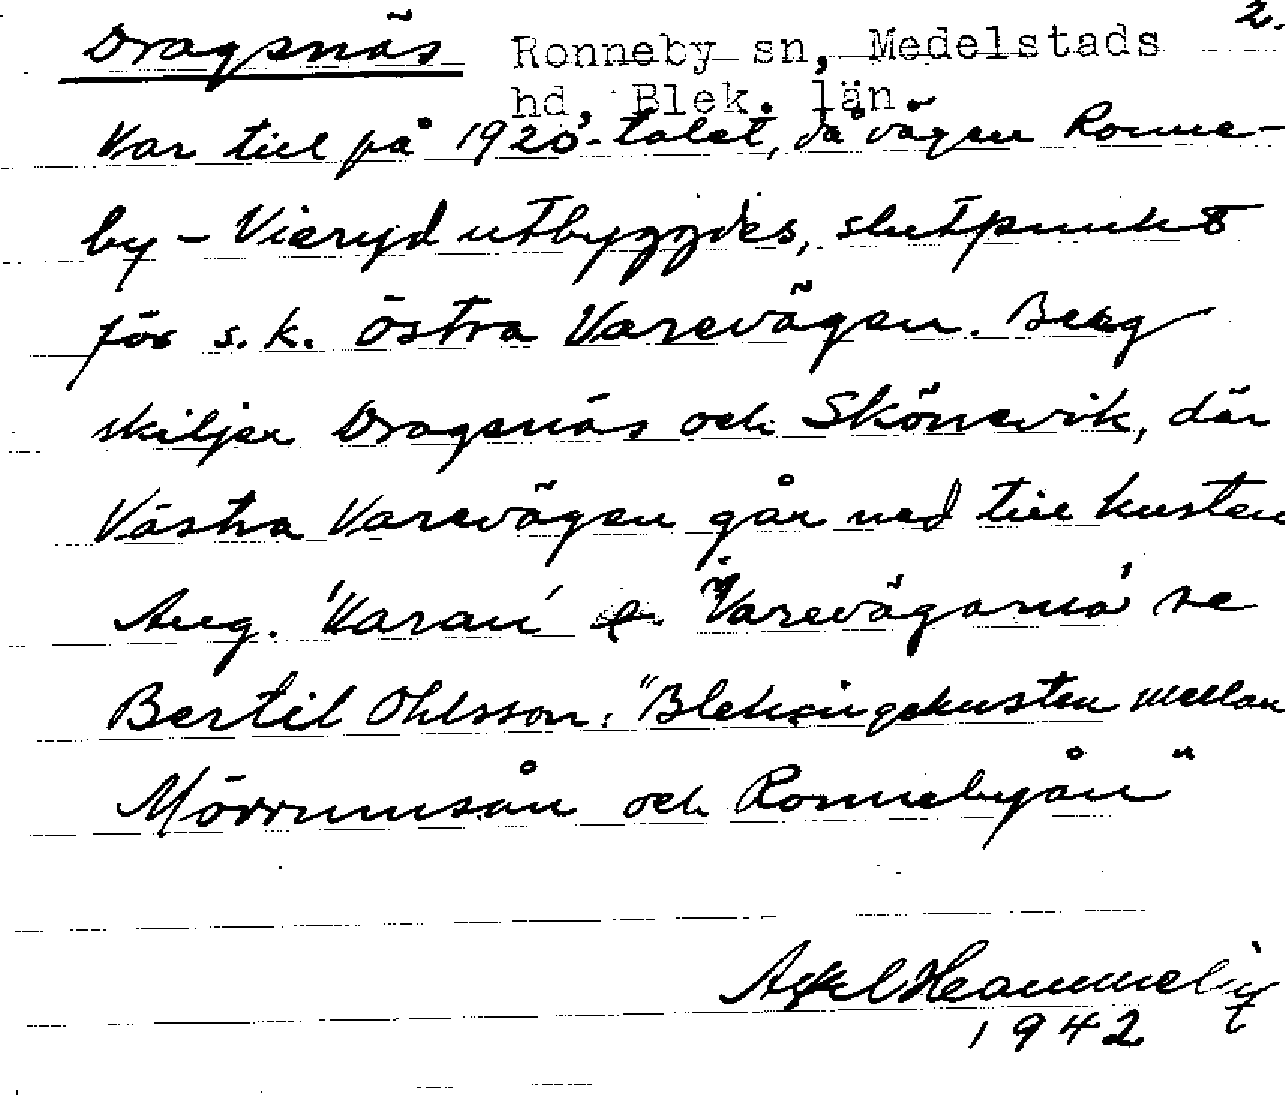 2.
Dragsnäs Ronneby sn, Medelstads
hd, Blek. län.
Var till på 1920-talet, då vägen Ronne-
by - Vieryd utbyggdes, slutpunkt
för s.k. Östra Varevägen. Berg
skiljer Dragsnäs och Skönevik, där
Västra Varevägen går ned till kusten
Ang. 'Varan' o. 'Varevägarna' se
Bertil Ohlsson: "Blekingekusten mellan
Mörrumsån och Ronnebyån"
Axel
1942